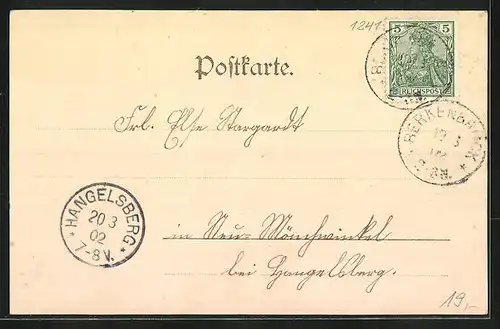 1241
5 5
REICHSPOST
Postkarte.
BERKENBRÜCK
19 3
02
Frl. Else Stargardt
HANGELSBERG
20 3
02
7-8 V.
in Neu-Mönchwinkel
bei Hangelsberg.
19,-